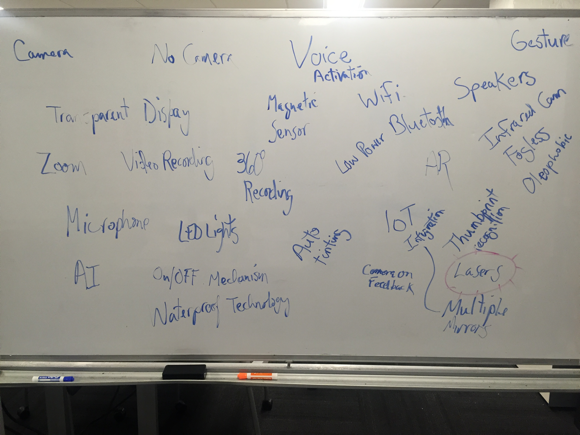 Camera
No Camera
Voice
Activation
Gesture
Transparent Display
Magnetic
Sensor
WiFi
Speakers
Low Power Bluetooth
Infrared Cam
Fogless
Oleophobic
Zoom
Video Recording
360°
Recording
AR
Microphone
LED Lights
Auto
tinting
IoT
Integration
Thumbprint
recognition
AI
On/OFF Mechanism
Camera on
Feedback
Lasers
Waterproof Technology
Multiple
Mirrors